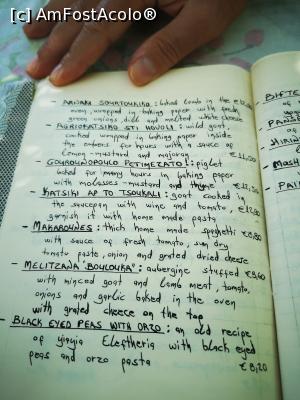 [c] AmFostAcolo®
- ARNAKI SOURTOUKIKO: baked lamb in the
oven, wrapped in baking paper with fresh
green onions, dill and melted white cheese
- AGRIOKATSIKO STI HOVOLI: wild goat,
cooked wrapped in baking paper inside
the embers for hours with a sauce of
lemon-mustard and majoram
- GOUROUNOPOULO PETIMEZATO: piglet
baked for many hours in baking paper
with molasses-mustard and thyme
- KATSIKI AP TO TSOUKALI: goat cooked in
the saucepan with wine and tomato,
garnish it with home made pasta
- MAKAROUNES: thick home made spaghetti €8,80
with sauce of fresh tomato, sun dry
tomato paste, onion and grated dried cheese
- MELITZANA "BOULOUKA": aubergine stuffed €9,60
with minced goat and lamb meat, tomato,
onions and garlic baked in the oven
with grated cheese on the top
- BLACK EYED PEAS WITH ORZO: an old recipe
of yiayia Eleftheria with black eyed
peas and orzo pasta €8,20
- BIFTE